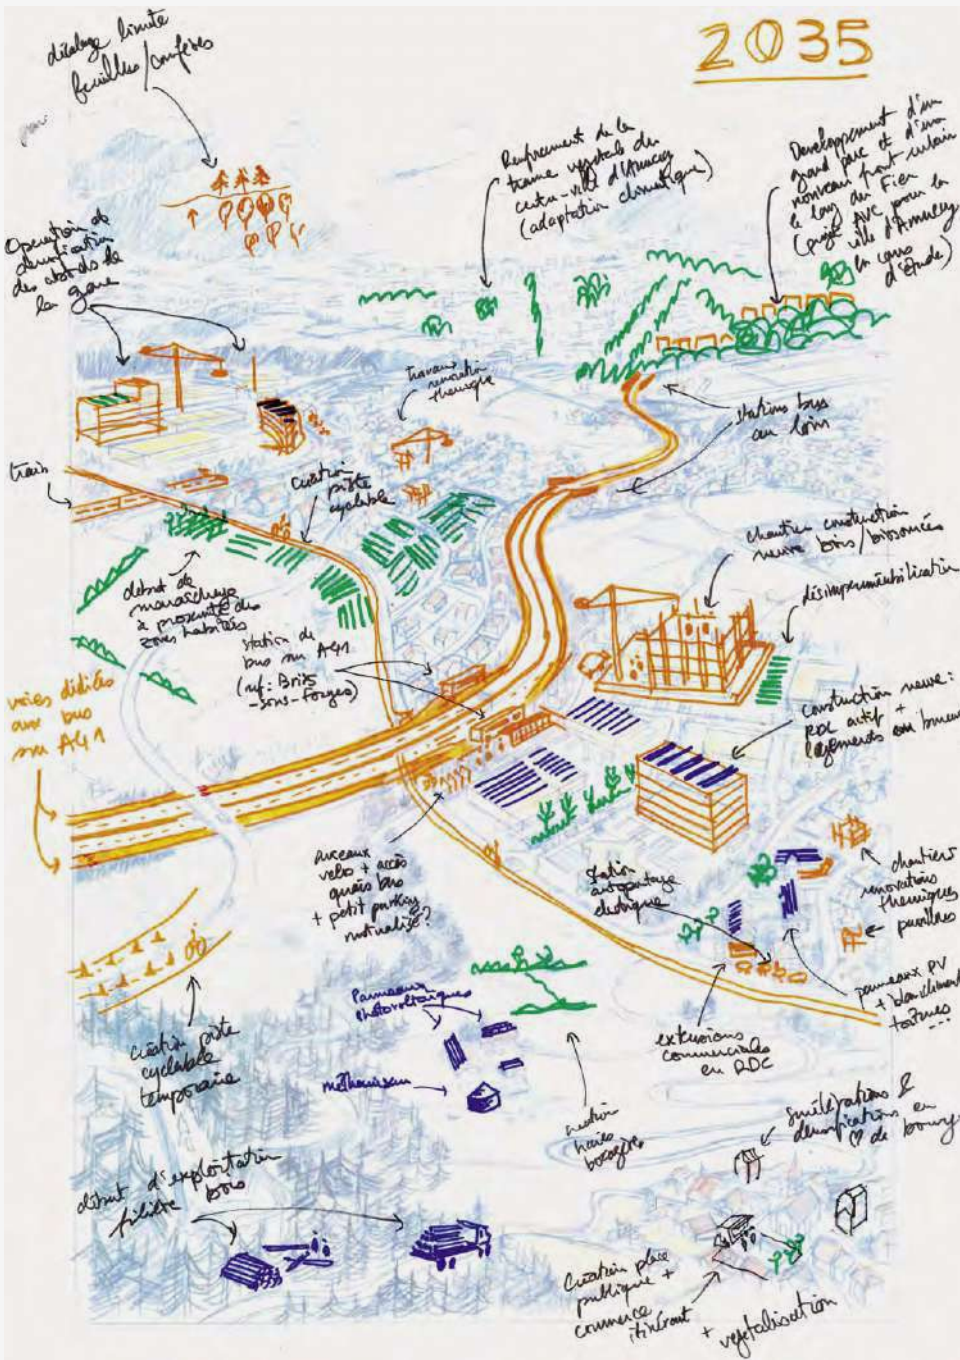 2035
décalage limite
feuillus/conifères
Renforcement de la
trame végétale du
centre-ville d'Annecy
(adaptation climatique)
Développement d'un
grand parc et d'un
nouveau front urbain
le long du Fier
(projet AVC pour la
ville d'Annecy
en cours
d'étude)
Opération de
densification
des abords de
la gare
travaux
rénovation
thermique
stations bus
au loin
train
création
piste
cyclable
chantier construction
neuve bois/biosourcés
désimperméabilisation
début de
maraîchage
à proximité des
zones habitées
station de
bus sur A41
(ref: Briis
-sous-Forges)
construction neuve:
RDC actif +
logements ou bureaux
voies dédiées
aux bus
sur A41
arceaux
vélo + accès
quais bus
+ petit parking
mutualisé?
station
autopartage
électrique
chantiers
rénovations
thermiques
pavillons
panneaux PV
+ blanchiment
toitures
...
extensions
commerciales
en RDC
Panneaux
photovoltaïques
méthaniseur
création piste
cyclable
temporaire
haies
bocagères
surélévations &
densifications en
♡ de bourg
début d'exploitation
filière bois
Création place
publique +
commerce
itinérant
+ végétalisation